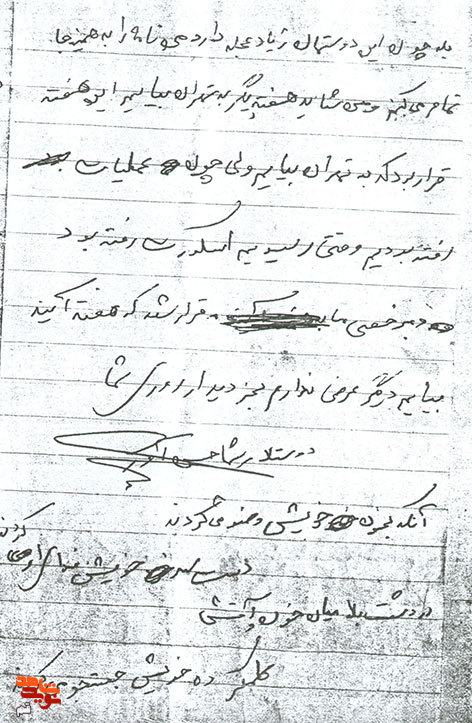 بله چون این دوستمان زیاد عجله دارد من نامه را به همین جا
تمام می‌کنم و من شاید هفته دیگر به تهران بیایم این هفته
قرار بود که به تهران بیایم ولی چون عملیات
رفته بودیم وقتی رسیدیم اسکورت رفته بود
و مرخصی ما قرار شد که هفته آینده
بیایم دیگر عرضی ندارم بجز دیدار روی شما
دوستدار شما حسن
آنانکه بخون خویش وضو می‌کردند
خویش می کردند
در دشت بلا میان خون و آتش
گمکرده خویش جستجو
نوید شاهد